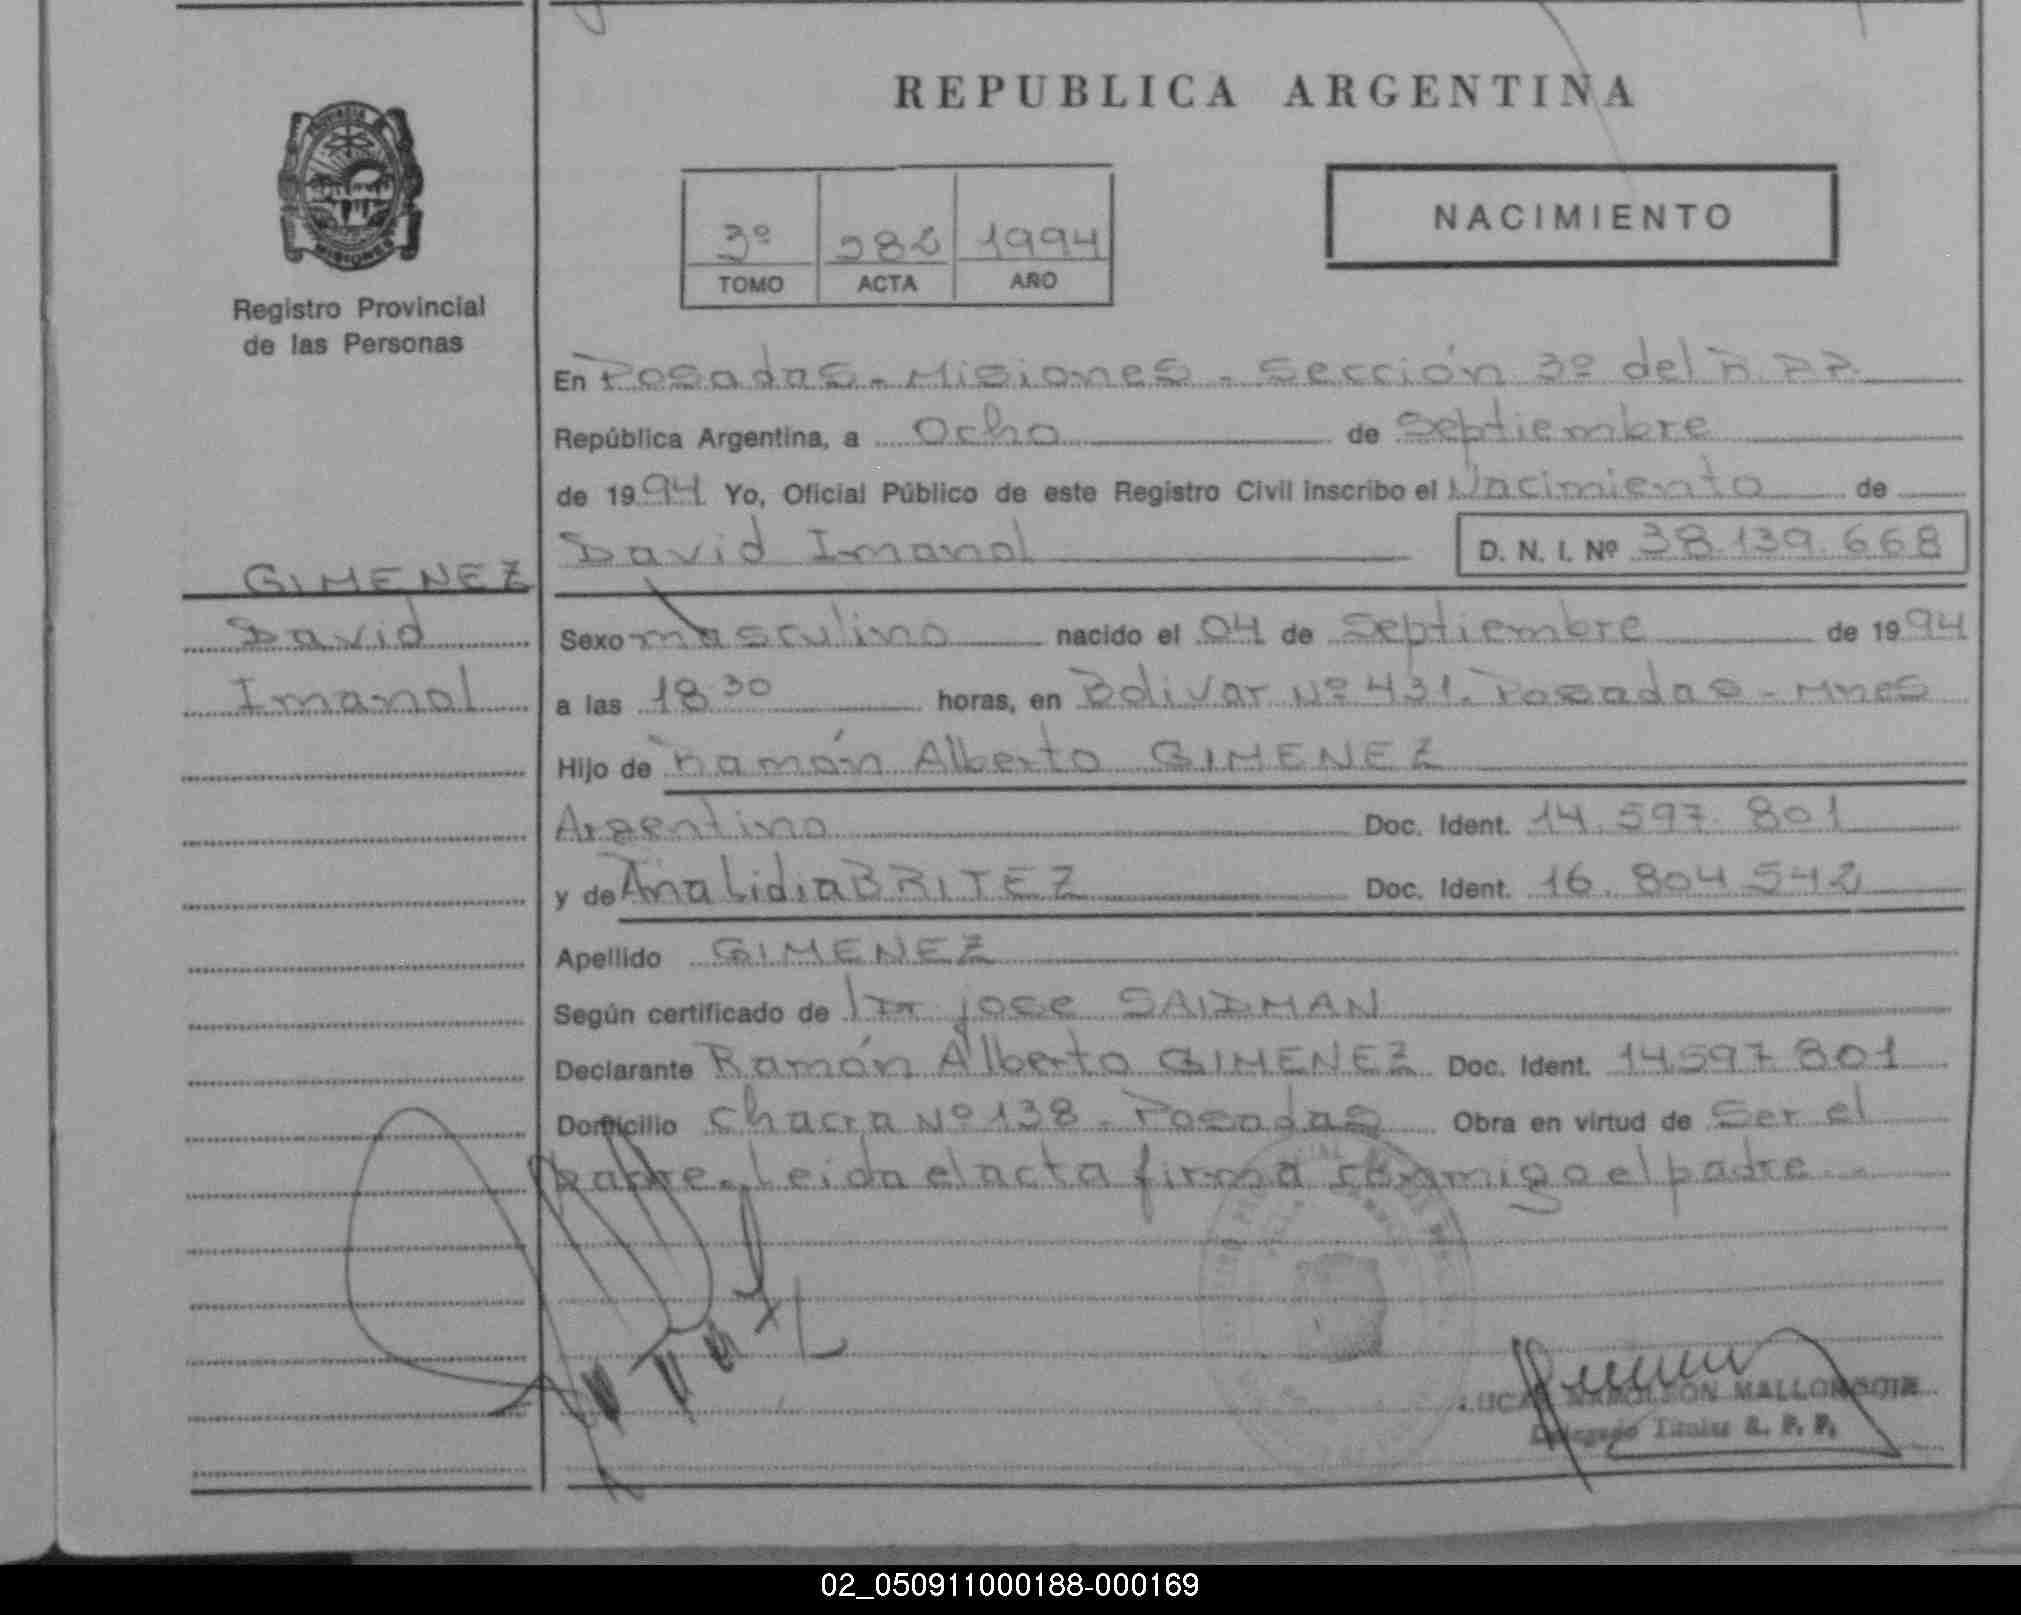 REPUBLICA ARGENTINA
PROVINCIA
MISIONES
Registro Provincial
de las Personas
3º 282 1994
TOMO ACTA AÑO
NACIMIENTO
En Posadas - Misiones - Sección 3º del R.P.P.
República Argentina, a Ocho de Septiembre
de 1994 Yo, Oficial Público de este Registro Civil inscribo el Nacimiento de
David Imanol D. N. I. Nº 38.139.668
GIMENEZ
David
Imanol
Sexo masculino nacido el 04 de Septiembre de 1994
a las 18 30 horas, en Bolivar Nº 431. Posadas - Mnes
Hijo de Ramón Alberto GIMENEZ
Argentino Doc. Ident. 14.597.801
y de Ana Lidia BRITEZ Doc. Ident. 16.804.542
Apellido GIMENEZ
Según certificado de Dr jose SAIDMAN
Declarante Ramón Alberto GIMENEZ Doc. Ident. 14597.801
Domicilio Chacra Nº 138 - Posadas Obra en virtud de Ser el
padre. Leida el acta firma conmigo el padre -
LUCAS NAPOLEON
Delegado Titular R. P. P.
02_050911000188-000169